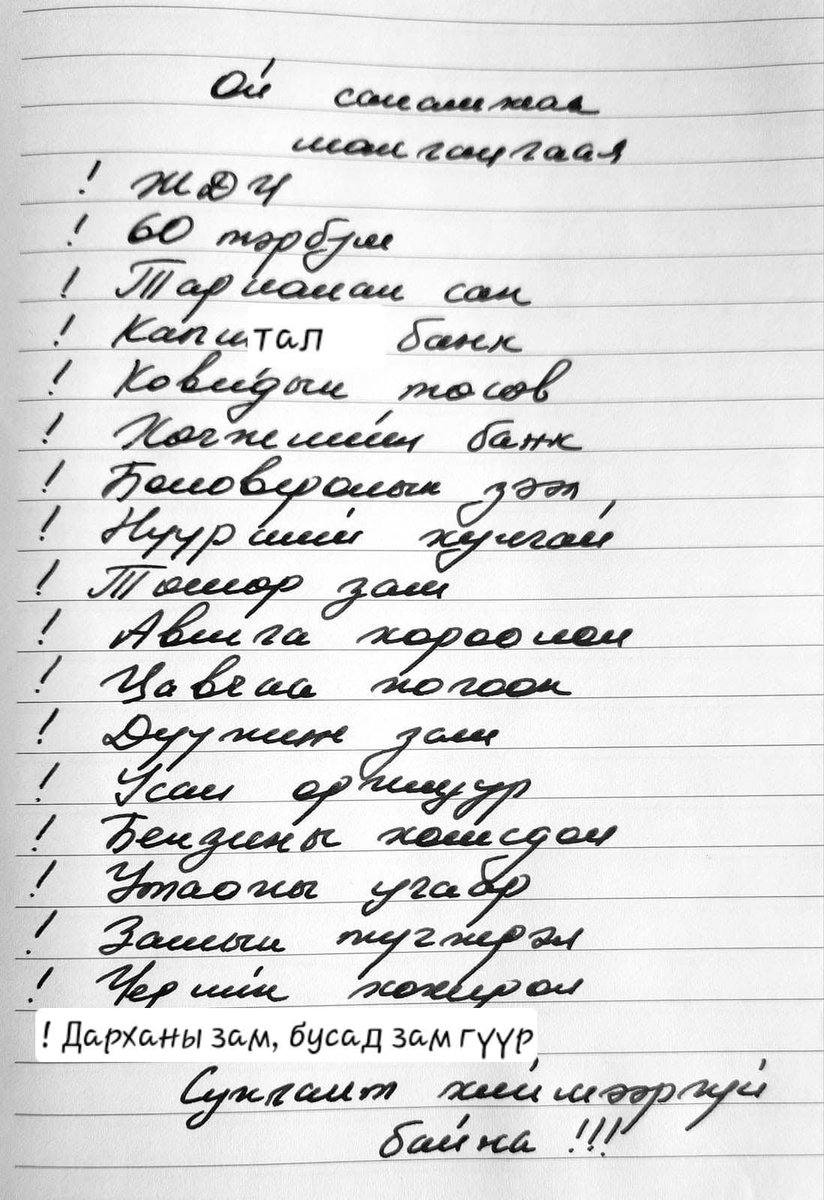 Ой санамжаа
мангаугаал
! ЖДҮ
! 60 тэрбум
! Тариалан сан
! Капитал банк
! Ковидын төсөв
! Хөгжлийн банк
! Боловсролын зээл
! Нүүрсний хулгай
! Төмөр зам
! Авлига хороолол
! Цавчаа ногоон
! Дүүжин зам
! Усан оргилуур
! Бензины хомсдол
! Утааны угаар
! Замын түгжрэл
! Үерийн хохирол
! Дарханы зам, бусад зам гүүр
Сунгалт хиймээргүй
байна !!!